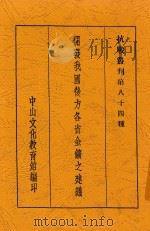 抗戰叢刊第八十四種
開發我國後方各省金礦之建議
中山文化教育館編印